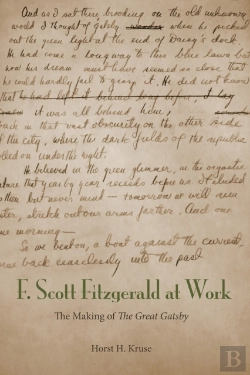 And as I sat there brooding on the old unknown
world I thought of Gatsby when he picked
out the green light at the end of Daisy's dock.
He had come a long way to this blue lawn but
now his dream must have seemed so close that
he could hardly fail to grasp it. He did not know
that
it was all behind him,
back in that vast obscurity on the other side
of the city, where the dark fields of the republic
rolled on under the night.
He believed in the green glimmer, in the orgastic
future that year by year recedes before us. It eluded
us then but never mind — tomorrow we will run
faster, stretch out our arms farther. And one
fine morning —
So we beat on, a boat against the current,
back ceaselessly into the past
F. Scott Fitzgerald at Work
The Making of The Great Gatsby
Horst H. Kruse
B